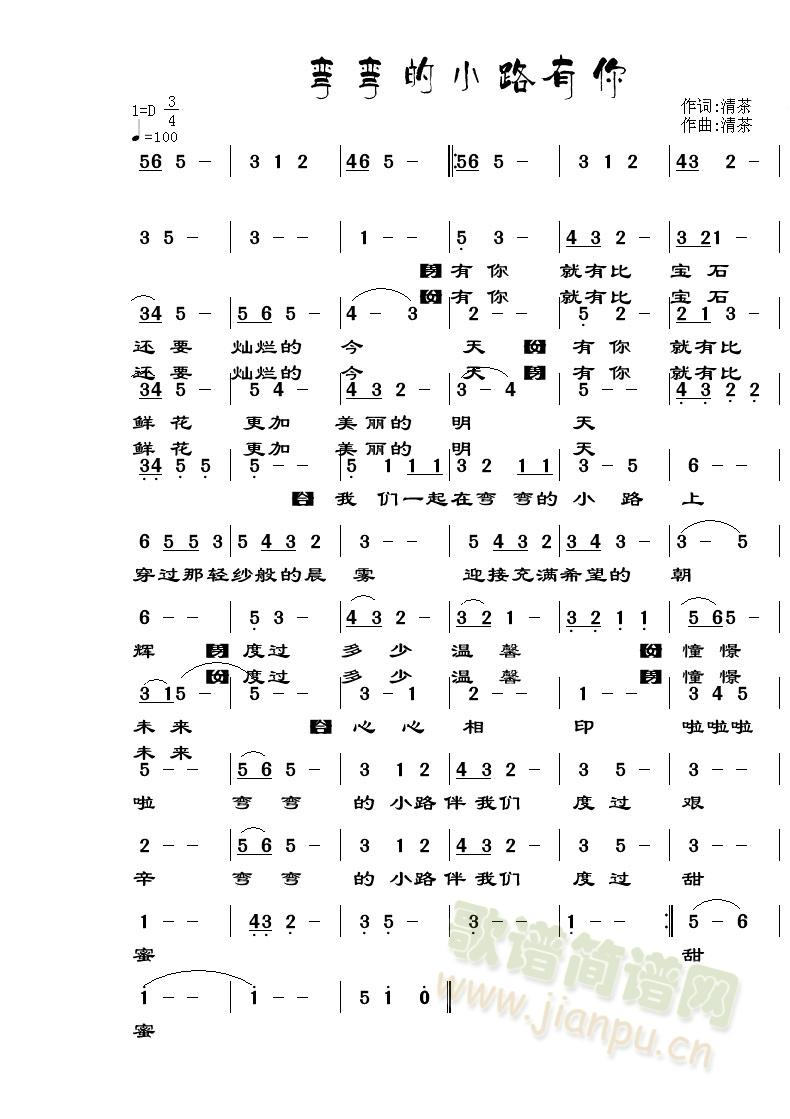 弯弯的小路有你
1=D 3/4
♩=100
作词:清茶
作曲:清茶
56 5 - | 3 1 2 | 46 5 - ‖: 56 5 - | 3 1 2 | 43 2 - |
3 5 - | 3 - - | 1 - - | 5 3 - | 43 2 - | 3 21 - |
男 有你 就有比 宝石
女 有你 就有比 宝石
34 5 - | 56 5 - | 4 - 3 | 2 - - | 5 2 - | 21 3 - |
还要 灿烂的 今 天 女 有你 就有比
还要 灿烂的 今 天 男 有你 就有比
34 5 - | 5 4 - | 43 2 - | 3 - 4 | 5 - - | 43 2 2 |
鲜花 更加 美丽的 明 天
鲜花 更加 美丽的 明 天
34 5 5 | 5 - - | 5 1 11 | 3 2 11 | 3 - 5 | 6 - - |
合 我 们一起在弯 弯的 小 路 上
6 55 3 | 5 43 2 | 3 - - | 5 43 2 | 34 3 2 | 3 - 5 |
穿过那轻纱般的晨 雾 迎接充满希望的 朝
6 - - | 5 3 - | 43 2 - | 32 1 - | 32 1 1 | 5 65 - |
辉 男 度过 多少 温馨 女 憧憬
女 度过 多少 温馨 男 憧憬
3 15 - | 5 - - | 3 - 1 | 2 - - | 1 - - | 3 4 5 |
未来 合 心心 相 印 啦啦啦
未来
5 - - | 56 5 - | 3 12 | 43 2 - | 3 5 - | 3 - - |
啦 弯 弯 的 小路伴我们 度过 艰
2 - - | 56 5 - | 3 12 | 43 2 - | 3 5 - | 3 - - |
辛 弯 弯 的 小路伴我们 度过 甜
1 - - | 43 2 - | 3 5 - | 3 - - | 1 - - :‖ 5 - 6 |
蜜 甜
1 - - | 1 - - | 5 1 0 ‖
蜜
歌谱简谱网
www.jianpu.cn